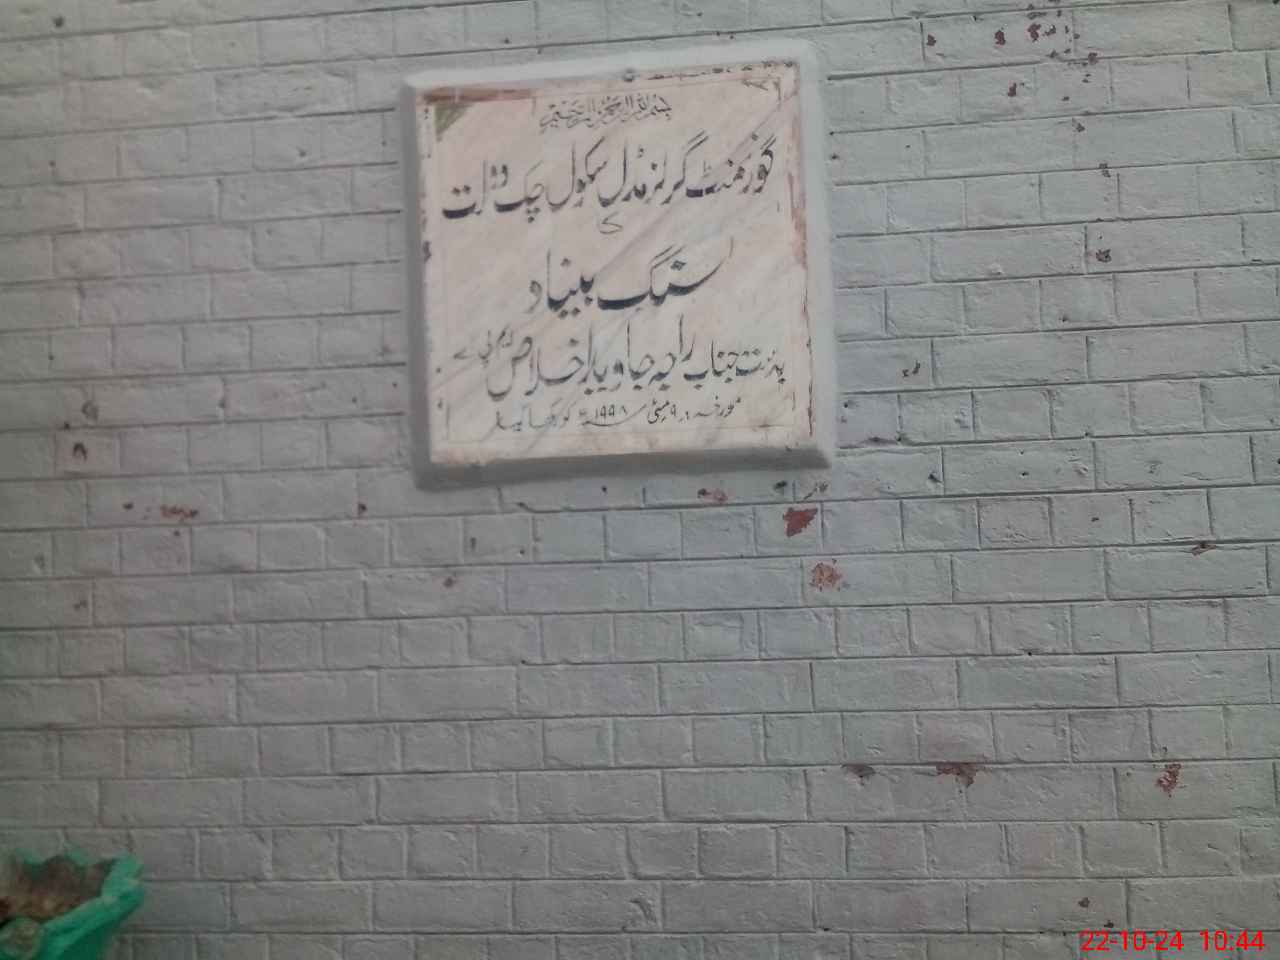 بسم اللہ الرحمن الرحیم
گورنمنٹ گرلز مڈل سکول چک دولت
کے
سنگ بنیاد
بدست جناب راجہ جاوید اخلاص ایم پی اے
مورخہ 9 مئی ۱۹۹۸ء کو رکھا گیا
22-10-24 10:44